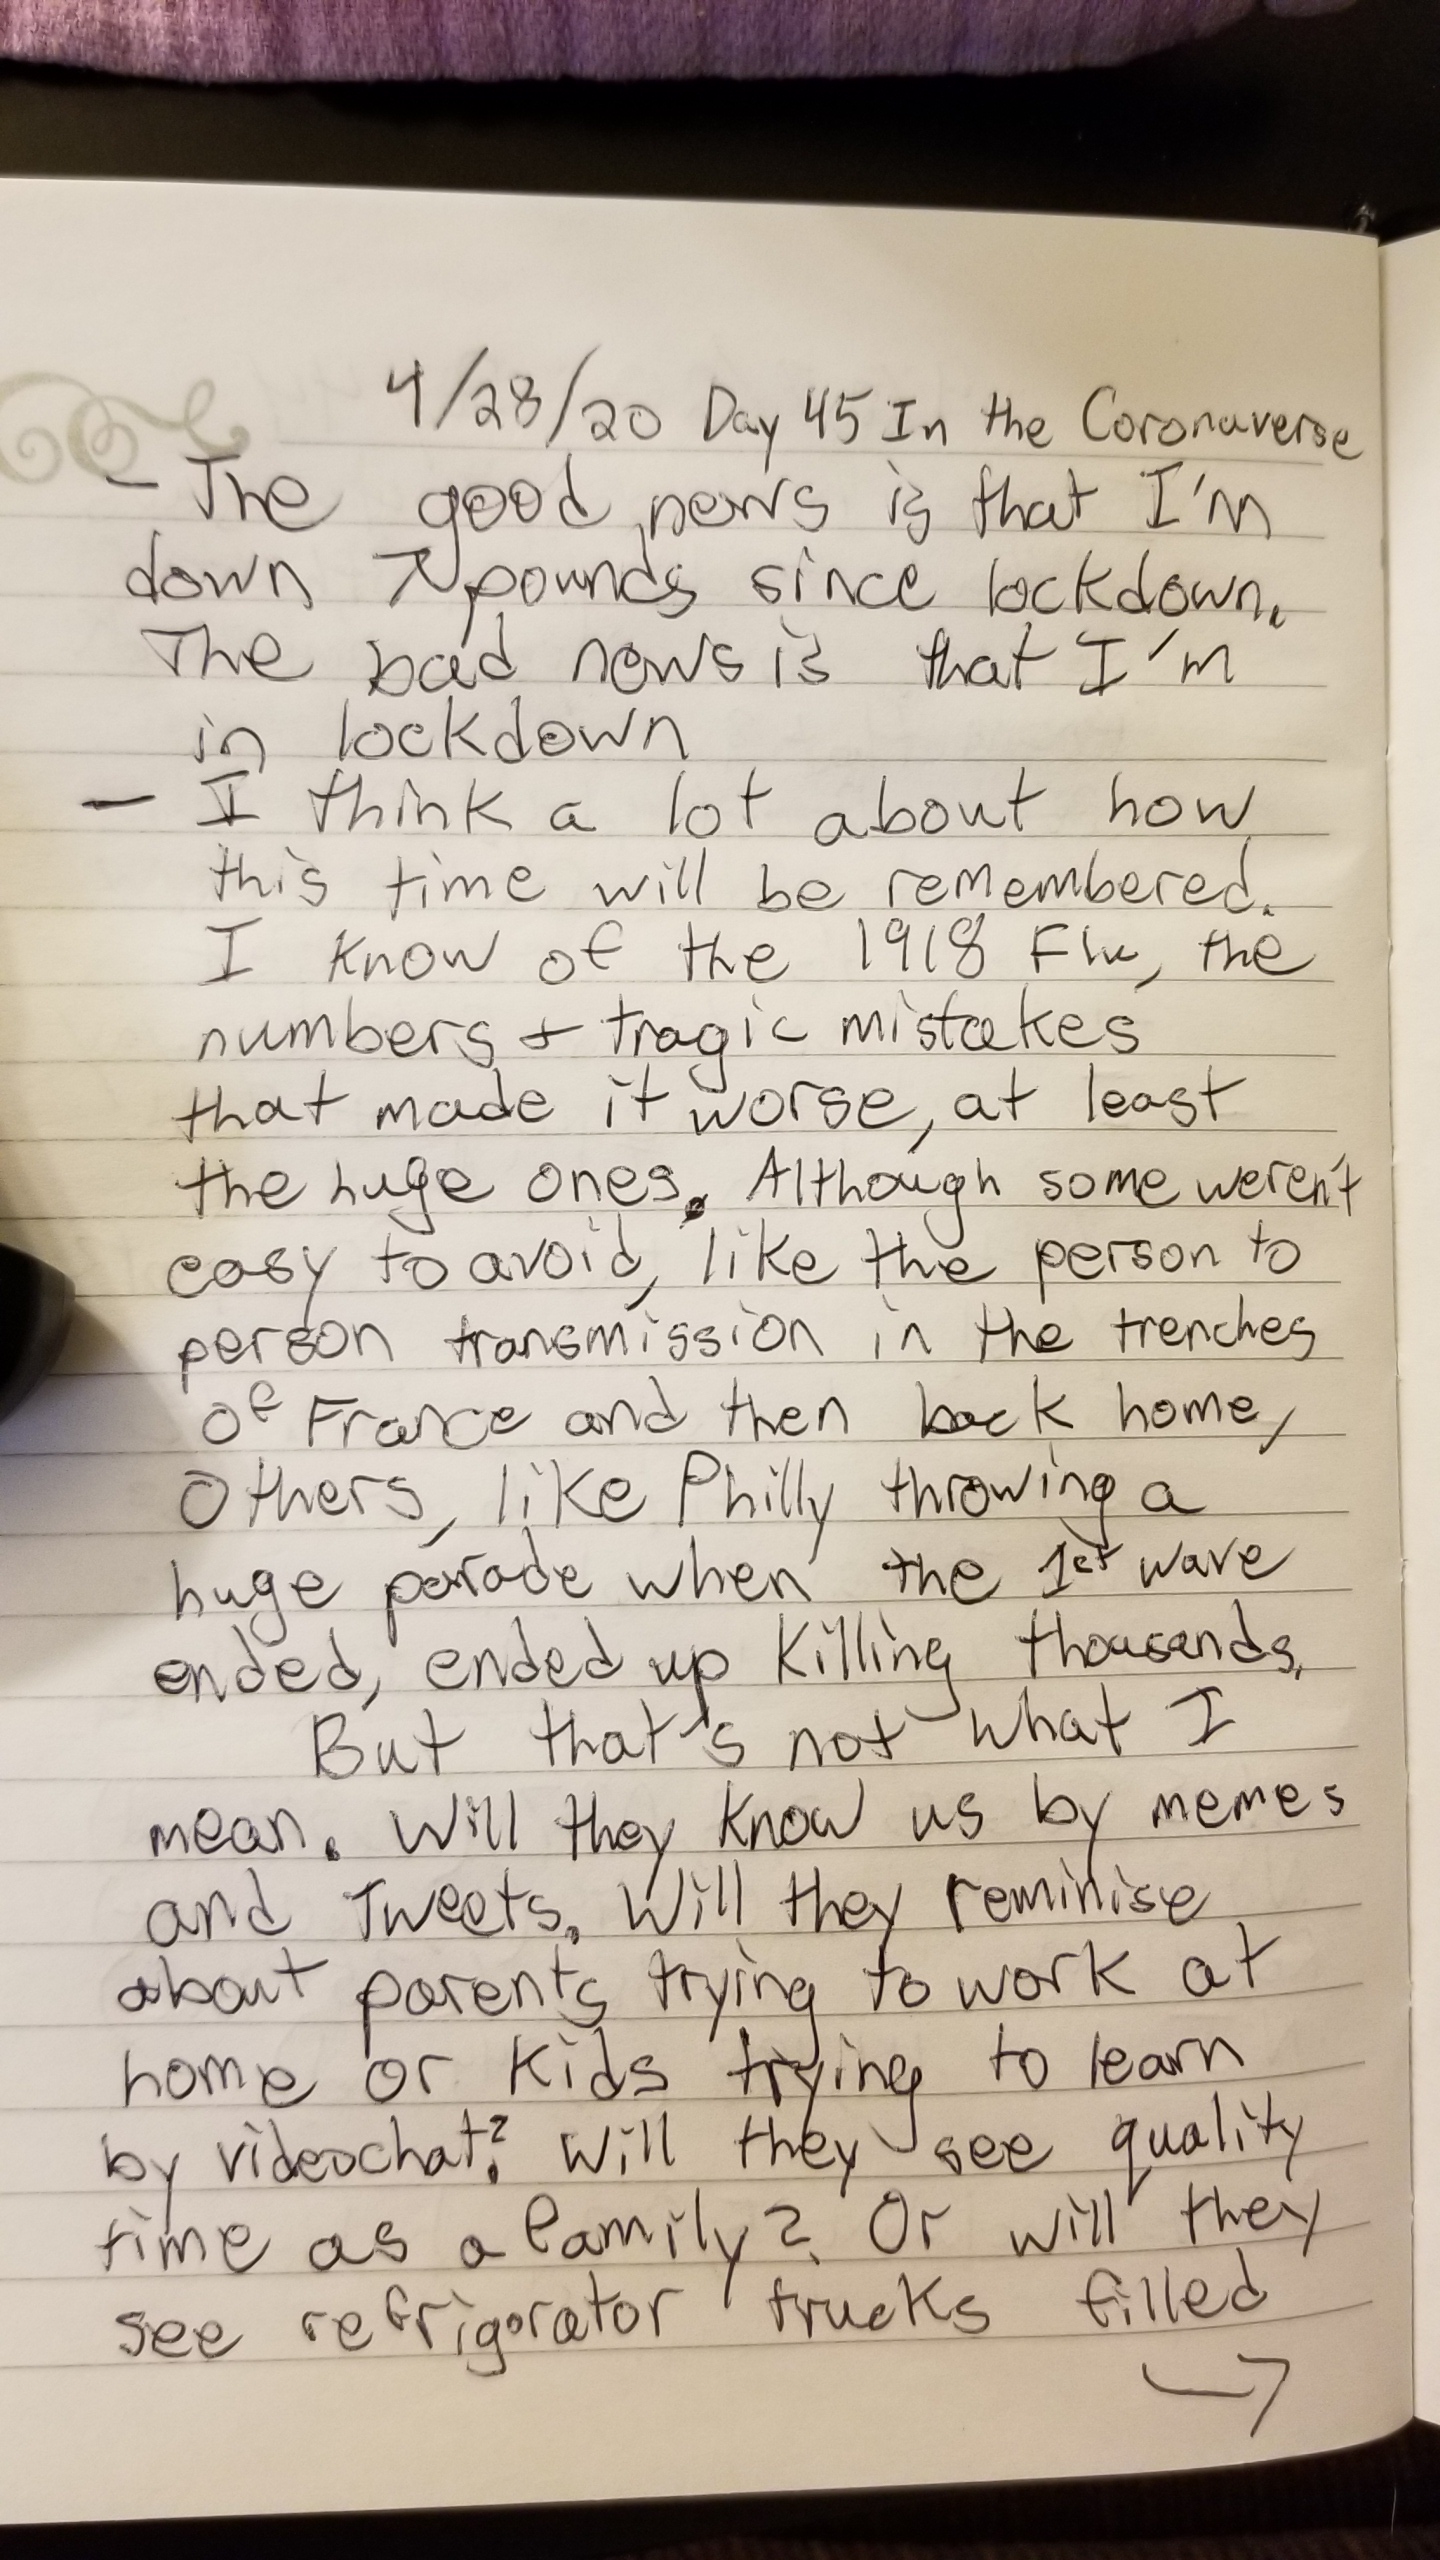 4/28/20 Day 45 In the Coronaverse
- The good news is that I'm
down 7 pounds since lockdown.
The bad news is that I'm
in lockdown
- I think a lot about how
this time will be remembered.
I know of the 1918 Flu, the
numbers + tragic mistakes
that made it worse, at least
the huge ones. Although some weren't
easy to avoid, like the person to
person transmission in the trenches
of France and then back home,
Others, like Philly throwing a
huge parade when the 1st wave
ended, ended up killing thousands.
But that's not what I
mean. Will they know us by memes
and Tweets. Will they reminise
about parents trying to work at
home or kids trying to learn
by videochat? Will they see quality
time as a family? Or will they
see refrigorator trucks filled
→